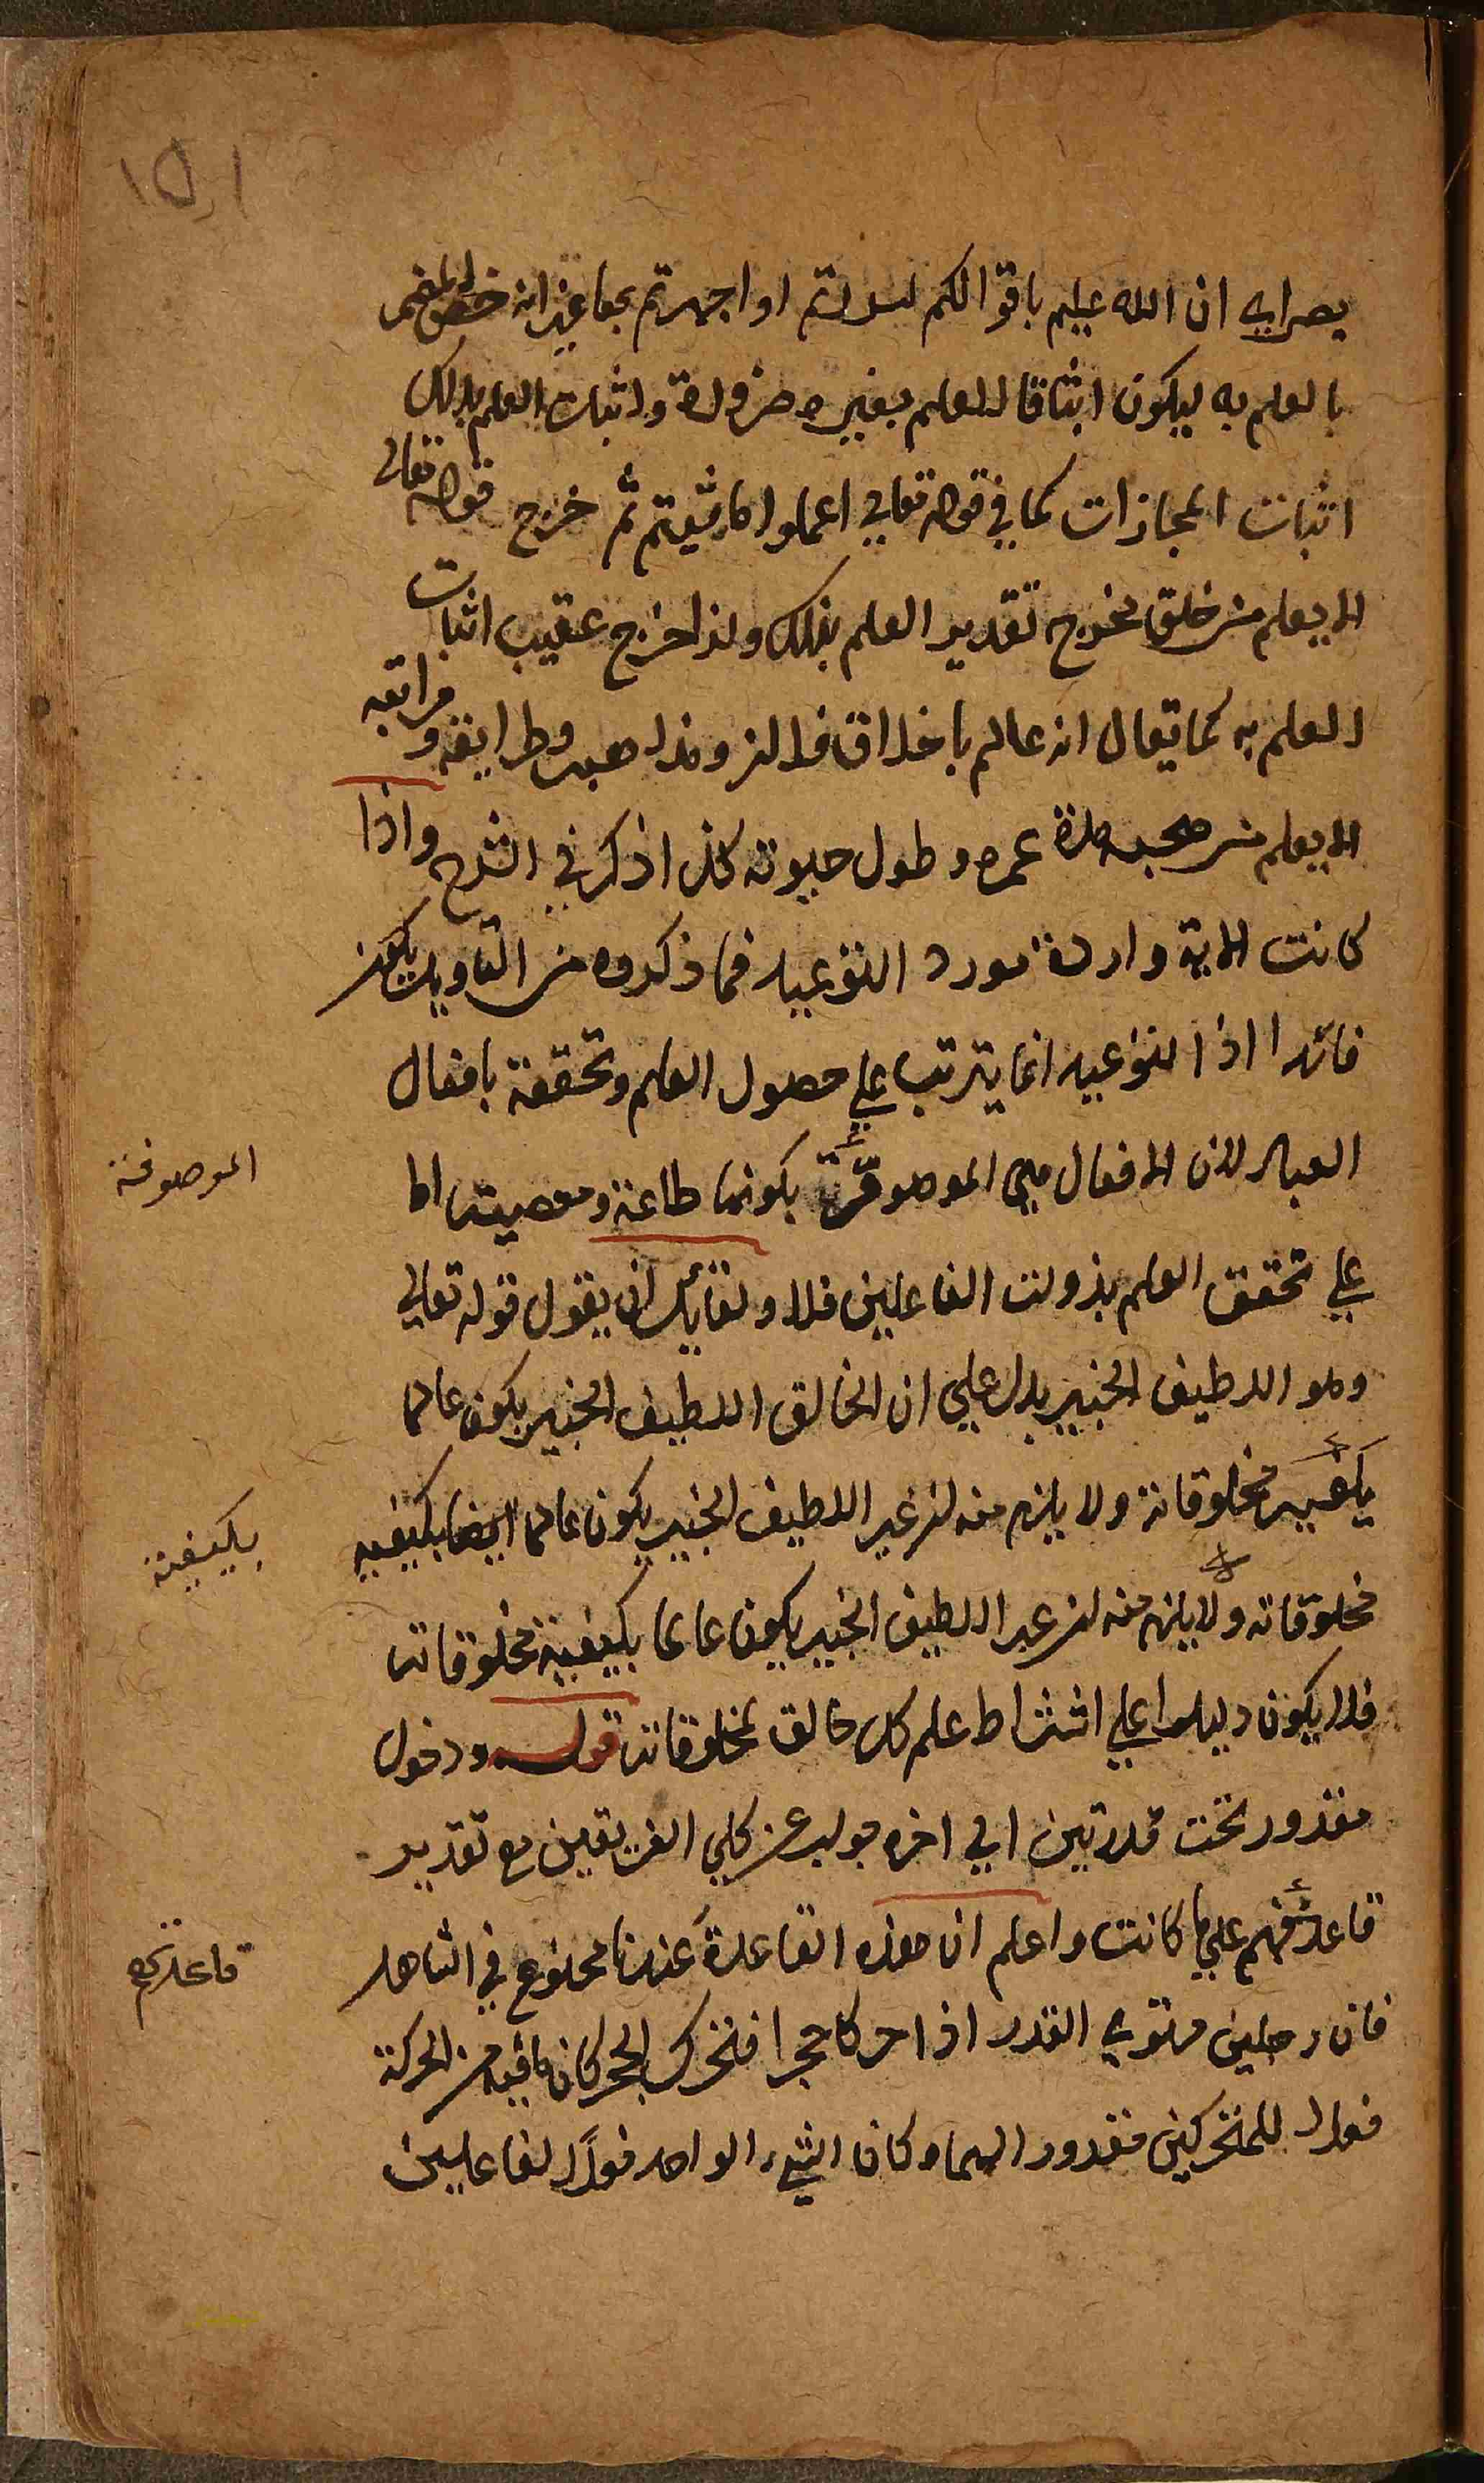 ١٥١
بصرايه ان الله عليم باقوالكم اسررتم او اجهرتم بها غير انه خص المضمر
بالعلم به ليكون اثباتا للعلم بغيره ضرورة واثبات العلم بذلك
اثبات المجازات كما في قوله تعالى اعملوا ما شيتم ثم خرج قوله تعالى
الا يعلم من خلق مخرج تقدير العلم بذلك ولذا خرج عقيب اثبات
العلم به كما يقال انه عالم باخلاق فلان ومذاهبه وطرايقه ومراتبه
الا يعلم من صحبه مدة عمره وطول حيوته كذا ذكر في الشرح واذا
كانت الاية واردة مورد التوعيد فما ذكروه من التاويل يكون
فاسدا اذ التوعيد انما يترتب على حصول العلم وتحققه بافعال
العباد لان الافعال هي الموصوفة بكونها طاعة ومعصية اما
الموصوفة
على تحقق العلم بذوات الفاعلين فلا ولقايل ان يقول قوله تعالى
وهو اللطيف الخبير يدل على ان الخالق اللطيف الخبير يكون عالما
بكيفية مخلوقاته ولا يلزم منه ان غير اللطيف الخبير يكون عالما ايضا بكيفية
بكيفية
مخلوقاته ولا يلزم منه ان غير اللطيف الخبير يكون عالما بكيفية مخلوقاته
فلا يكون دليلا على اشتراط علم كل خالق بمخلوقاته قوله ودخول
مقدور تحت قدرتين الى اخره جواب عن كلي الفريقين مع تقدير
قاعدتهم على ما كانت واعلم ان هذه القاعدة عندنا ممنوع في الشاهد
قاعدتهم
فان رجلين مستوي القدر اذا حركا حجرا فتحرك الحجر كان ما فيه من الحركة
فعلا للمتحركين مقدورا لهما وكان الشيء الواحد فعلا لفاعلين